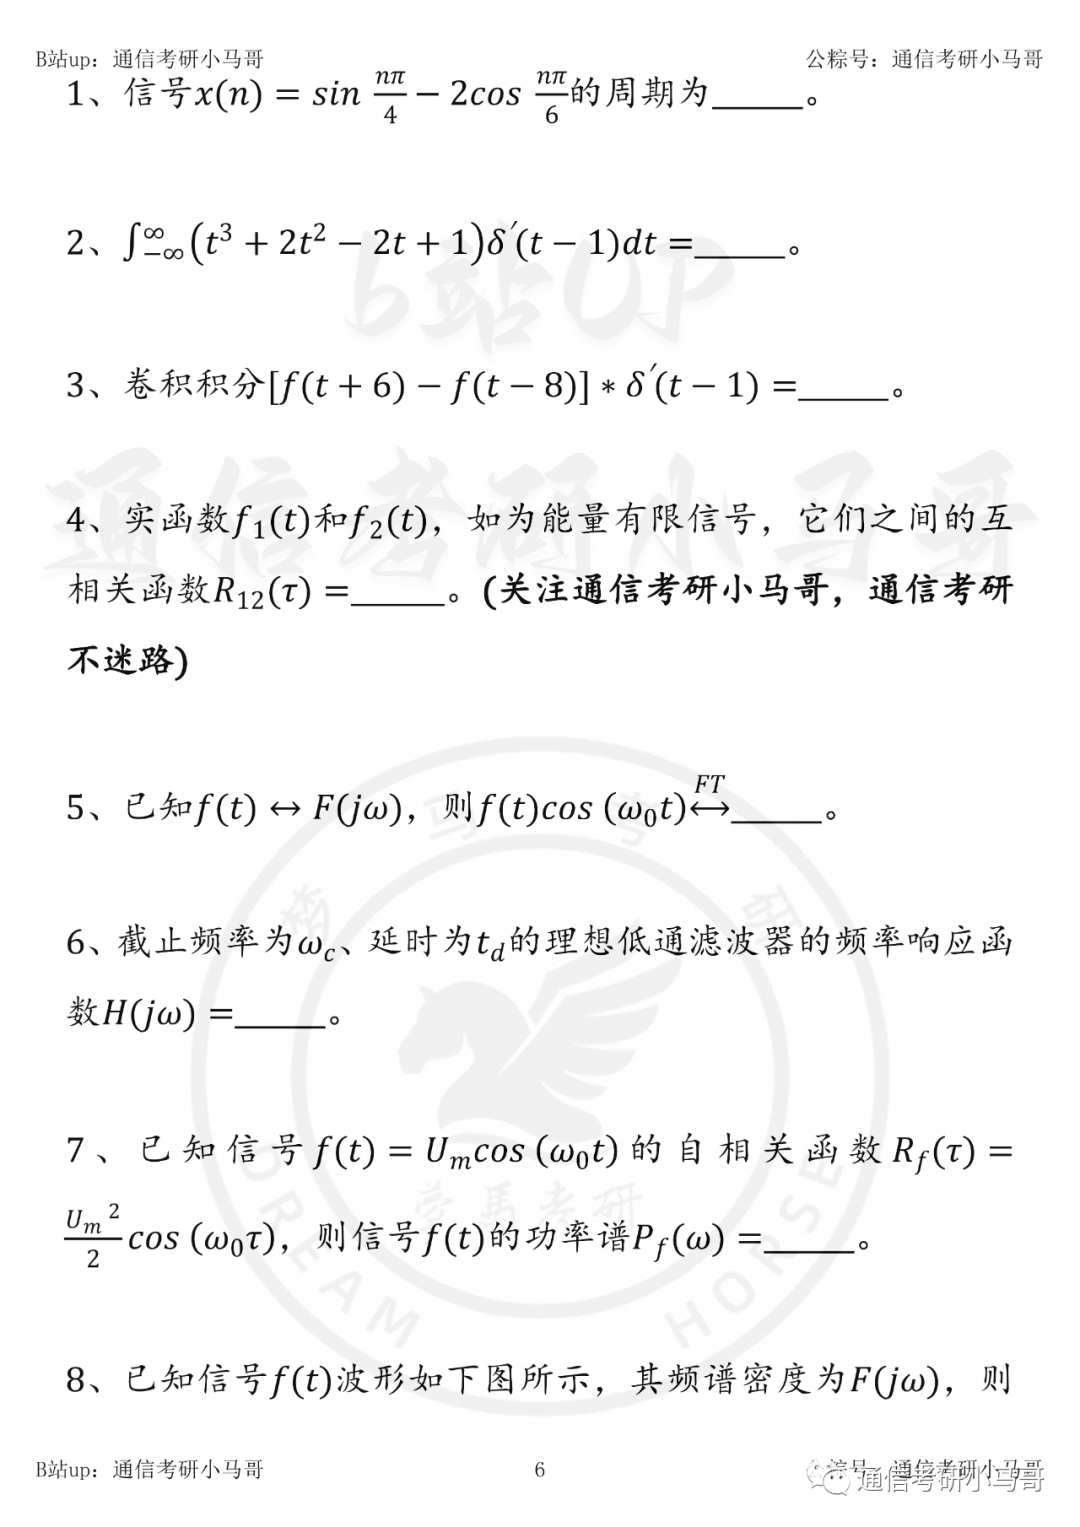 B站up：通信考研小马哥 公粽号：通信考研小马哥
1、信号x(n) = sin nπ/4 − 2cos nπ/6的周期为_____。
2、∫_{−∞}^{∞}(t³ + 2t² − 2t + 1)δ′(t − 1)dt =_____。
3、卷积积分[f(t + 6) − f(t − 8)] ∗ δ′(t − 1) =_____。
4、实函数f₁(t)和f₂(t)，如为能量有限信号，它们之间的互
相关函数R₁₂(τ) =_____。(关注通信考研小马哥，通信考研
不迷路)
5、已知f(t) ↔ F(jω)，则f(t)cos (ω₀t) FT ⟷_____。
6、截止频率为ω_c、延时为t_d的理想低通滤波器的频率响应函
数H(jω) =_____。
7、已知信号f(t) = U_m cos (ω₀t)的自相关函数R_f(τ) =
U_m²/2 cos (ω₀τ)，则信号f(t)的功率谱P_f(ω) =_____。
8、已知信号f(t)波形如下图所示，其频谱密度为F(jω)，则
B站up：通信考研小马哥 6 公粽号：通信考研小马哥
通信考研小马哥
b站UP
通信考研小马哥
梦马考研
梦马考研
DREAM HORSE